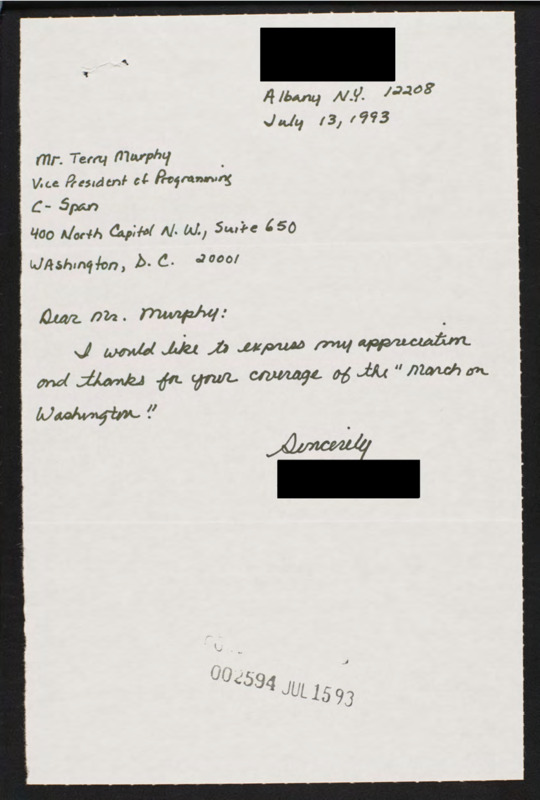 Albany N.Y. 12208
July 13, 1993
Mr. Terry Murphy
Vice President of Programming
C-Span
400 North Capitol N.W., Suite 650
WAshington, D.C. 20001
Dear Mr. Murphy:
I would like to express my appreciation
and thanks for your coverage of the "March on
Washington"
Sincerely
002594 JUL1593